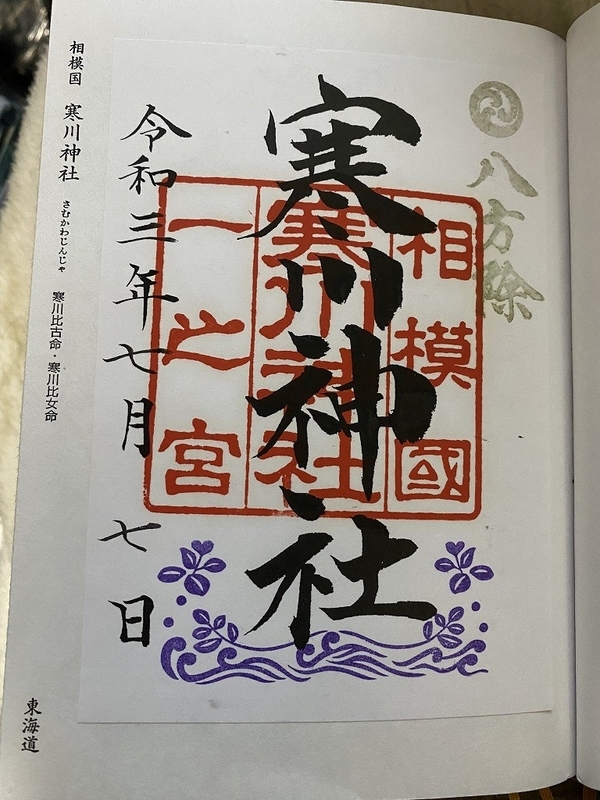 八方除
相模國
寒川神社
一之宮
寒川神社
令和三年七月七日
相模国 寒川神社 さむかわじんじゃ 寒川比古命・寒川比女命
東海道